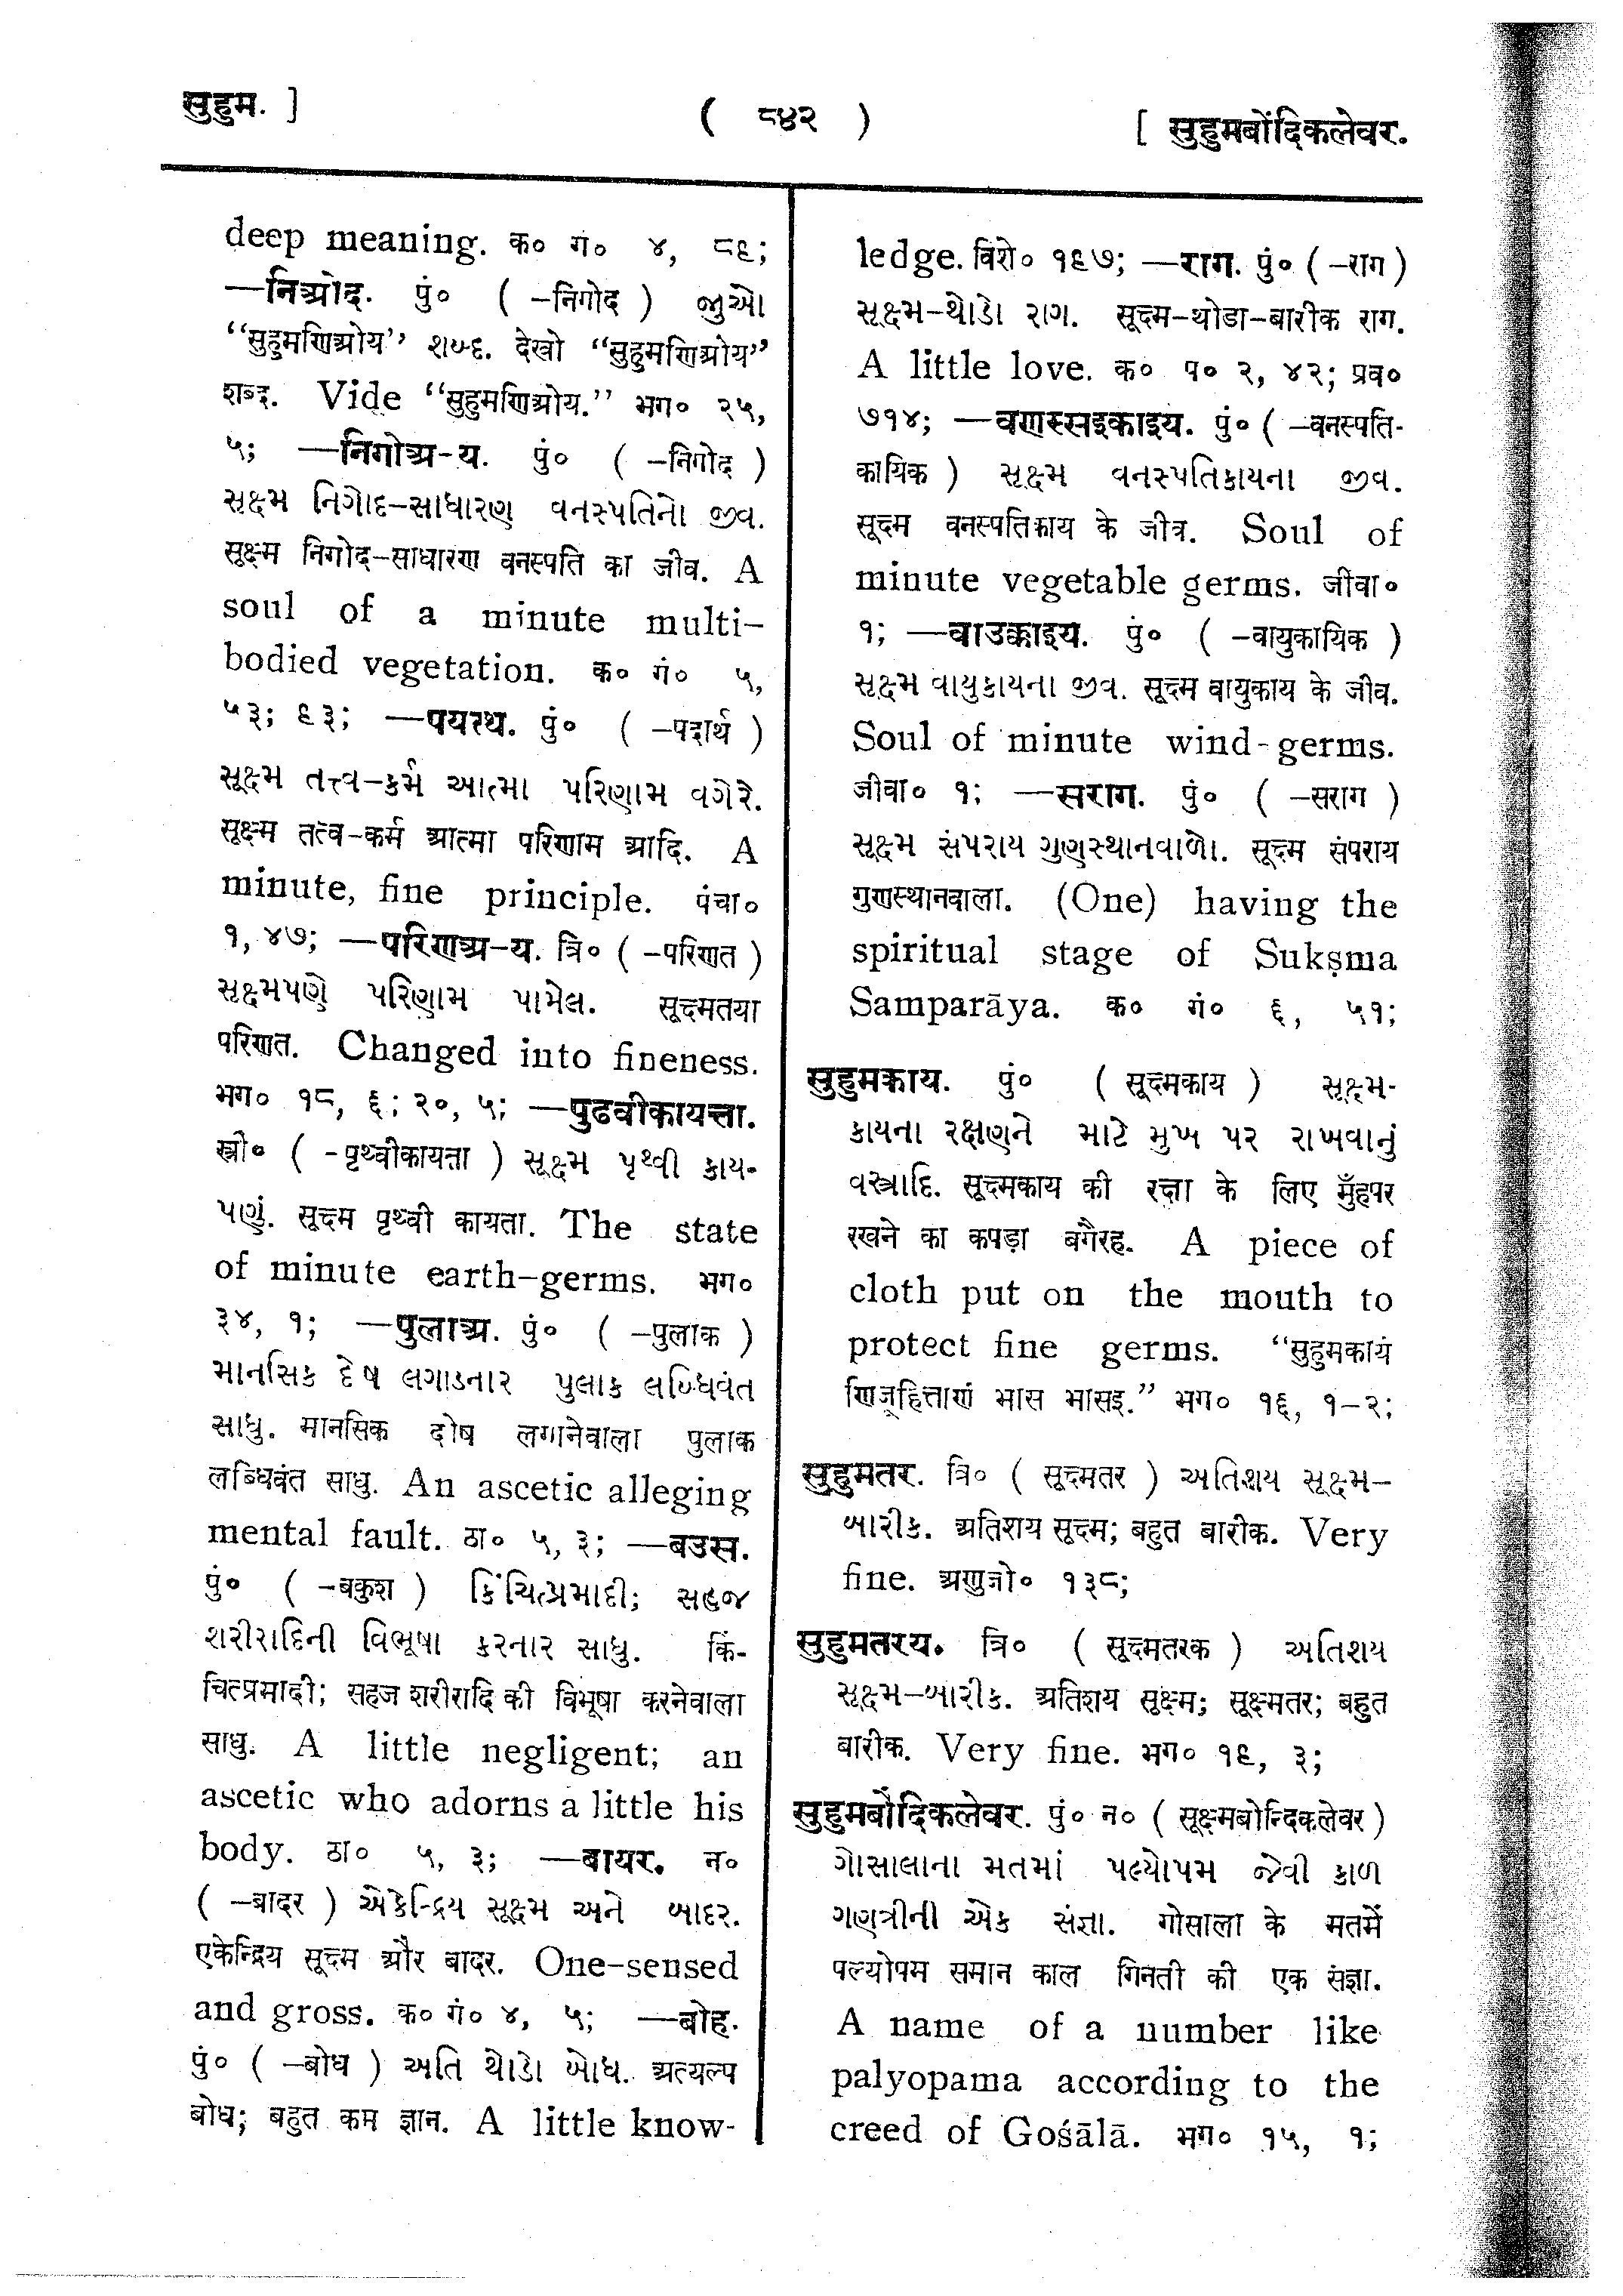 सुहुम. ]
( ८४२ )
[ सुहुमबोंदिकलेवर.
deep meaning. क० गं० ४, ८९;
—निओद. पुं० ( –निगोद ) જુઓ
“सुहुमणिओय” શબ્દ. देखो “सुहुमणिओय”
शब्द. Vide “सुहुमणिओय.” भग० २५,
५; —निगोअ-य. पुं० ( –निगोद )
સૂક્ષ્મ નિગોદ–સાધારણ વનસ્પતિનો જીવ.
सूक्ष्म निगोद–साधारण वनस्पति का जीव. A
soul of a minute multi–
bodied vegetation. क० गं० ५,
५३; ९३; —पयत्थ. पुं० ( –पदार्थ )
સૂક્ષ્મ તત્ત્વ–કર્મ આત્મા પરિણામ વગેરે.
सूक्ष्म तत्व–कर्म आत्मा परिणाम आदि. A
minute, fine principle. पंचा०
१, ४७; —परिणअ-य. त्रि० ( –परिणत )
સૂક્ષ્મપણે પરિણામ પામેલ. सूक्ष्मतया
परिणत. Changed into fineness.
भग० १८, ६; २०, ५; —पुढवीकायत्ता.
स्त्री० ( -पृथ्वीकायता ) સૂક્ષ્મ પૃથ્વી કાય-
પણું. सूक्ष्म पृथ्वी कायता. The state
of minute earth–germs. भग०
३४, १; —पुलाअ. पुं० ( –पुलाक )
માનસિક દોષ લગાડનાર પુલાક લબ્ધિવંત
સાધુ. मानसिक दोष लगानेवाला पुलाक
लब्धिवंत साधु. An ascetic alleging
mental fault. ठा० ५, ३; —बउस.
पुं० ( –बकुश ) કિંચિત્પ્રમાદી; સહજ
શરીરાદિની વિભૂષા કરનાર સાધુ. किं-
चित्प्रमादी; सहज शरीरादि की विभूषा करनेवाला
साधु. A little negligent; an
ascetic who adorns a little his
body. ठा० ५, ३; —बायर. न०
( –बादर ) એકેન્દ્રિય સૂક્ષ્મ અને બાદર.
एकेन्द्रिय सूक्ष्म और बादर. One–sensed
and gross. क० गं० ४, ५; —बोह.
पुं० ( –बोध ) અતિ થોડો બોધ. अत्यल्प
बोध; बहुत कम ज्ञान. A little know-
ledge. विशे० १९७; —राग. पुं० ( –राग )
સૂક્ષ્મ–થોડો રાગ. सूक्ष्म–थोडा–बारीक राग.
A little love. क० प० २, ४२; प्रव०
७१४; —वणस्सइकाइय. पुं० ( –वनस्पति-
कायिक ) સૂક્ષ્મ વનસ્પતિકાયના જીવ.
सूक्ष्म वनस्पतिकाय के जीव. Soul of
minute vegetable germs. जीवा०
१; —वाउक्काइय. पुं० ( –वायुकायिक )
સૂક્ષ્મ વાયુકાયના જીવ. सूक्ष्म वायुकाय के जीव.
Soul of minute wind-germs.
जीवा० १; —सराग. पुं० ( –सराग )
સૂક્ષ્મ સંપરાય ગુણસ્થાનવાળો. सूक्ष्म संपराय
गुणस्थानवाला. (One) having the
spiritual stage of Sukṣma
Samparāya. क० गं० ६, ५१;
सुहुमकाय. पुं० ( सूक्ष्मकाय ) સૂક્ષ્મ-
કાયના રક્ષણને માટે મુખ પર રાખવાનું
વસ્ત્રાદિ. सूक्ष्मकाय की रक्षा के लिए मुँहपर
रखने का कपड़ा बगैरह. A piece of
cloth put on the mouth to
protect fine germs. “सुहुमकायं
णिजूहित्ताणं भास भासइ.” भग० १६, १–२;
सुहुमतर. त्रि० ( सूक्ष्मतर ) અતિશય સૂક્ષ્મ–
બારીક. अतिशय सूक्ष्म; बहुत बारीक. Very
fine. अणुजो० १३८;
सुहुमतरय. त्रि० ( सूक्ष्मतरक ) અતિશય
સૂક્ષ્મ–બારીક. अतिशय सूक्ष्म; सूक्ष्मतर; बहुत
बारीक. Very fine. भग० १९, ३;
सुहुमबोंदिकलेवर. पुं० न० ( सूक्ष्मबोन्दिकलेवर )
ગોસાલાના મતમાં પલ્યોપમ જેવી કાળ
ગણત્રીની એક સંજ્ઞા. गोसाला के मतमें
पल्योपम समान काल गिनती की एक संज्ञा.
A name of a number like
palyopama according to the
creed of Gośālā. भग० १५, १;